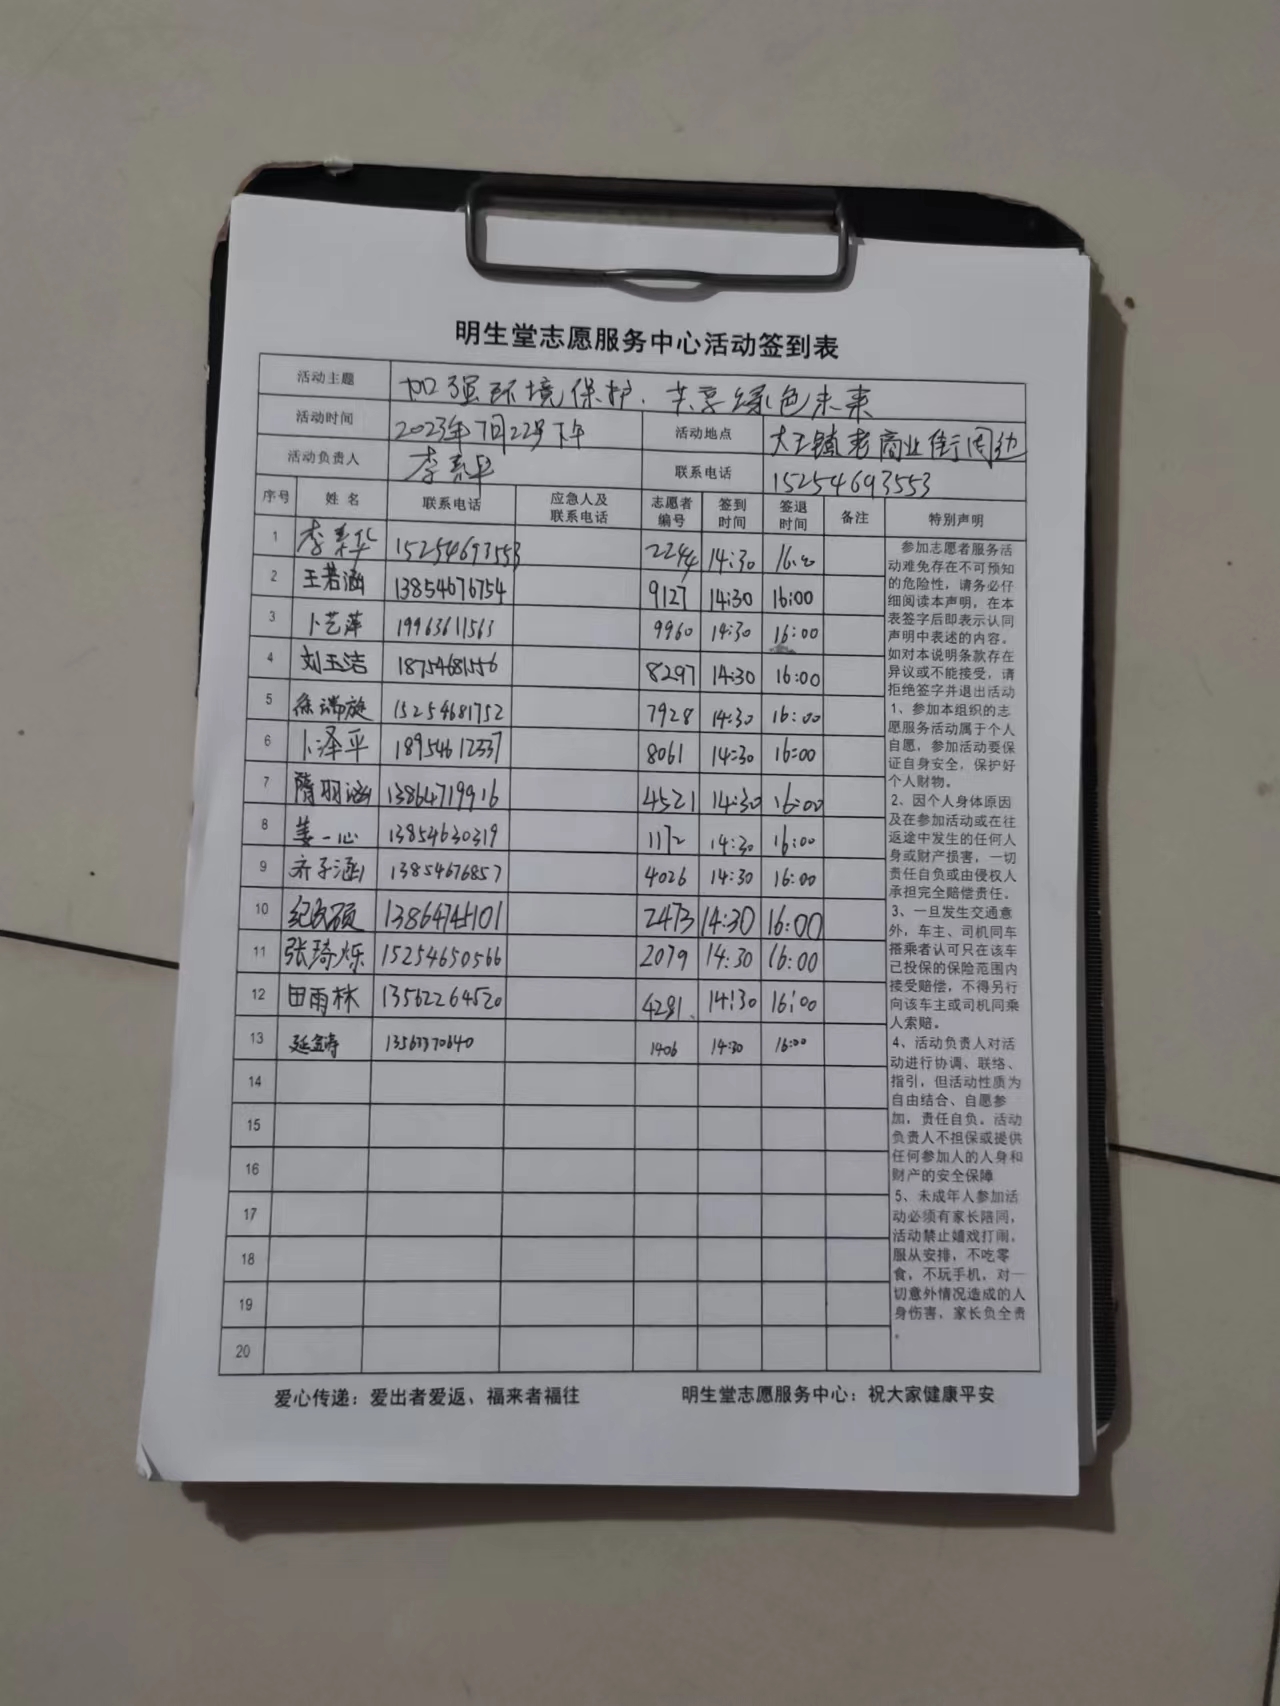 明生堂志愿服务中心活动签到表
活动主题 加强环境保护、共享绿色未来
活动时间 2023年7月22号下午 活动地点 大王镇老商业街周边
活动负责人 李素华 联系电话 15254693553
序号 姓名 联系电话 应急人及联系电话 志愿者编号 签到时间 签退时间 备注 特别声明
1 李素华 15254693553 2244 14:30 16:00
2 王若涵 13854676754 9127 14:30 16:00
3 卜艺萍 19963611563 9960 14:30 16:00
4 刘玉洁 18754681556 8297 14:30 16:00
5 徐瑞旋 15254681752 7928 14:30 16:00
6 卜泽平 18954612337 8061 14:30 16:00
7 隋羽涵 13864719916 4521 14:30 16:00
8 姜一心 13854630319 1172 14:30 16:00
9 齐子涵 13854676857 4026 14:30 16:00
10 纪 硕 2473 14:30 16:00
11 张琦烁 15254650566 2079 14:30 16:00
12 田雨林 13562264520 4281 14:30 16:00
13 1406 14:30 16:00
14
15
16
17
18
19
20
参加志愿者服务活
动难免存在不可预知
的危险性，请务必仔
细阅读本声明，在本
表签字后即表示认同
声明中表述的内容。
如对本说明条款存在
异议或不能接受，请
拒绝签字并退出活动
1、参加本组织的志
愿服务活动属于个人
自愿，参加活动要保
证自身安全，保护好
个人财物。
2、因个人身体原因
及在参加活动或在往
返途中发生的任何人
身或财产损害，一切
责任自负或由侵权人
承担完全赔偿责任。
3、一旦发生交通意
外，车主、司机同车
搭乘者认可只在该车
已投保的保险范围内
接受赔偿，不得另行
向该车主或司机同乘
人索赔。
4、活动负责人对活
动进行协调、联络、
指引，但活动性质为
自由结合、自愿参
加，责任自负。活动
负责人不担保或提供
任何参加人的人身和
财产的安全保障
5、未成年人参加活
动必须有家长陪同，
活动禁止嬉戏打闹，
服从安排，不吃零
食，不玩手机，对一
切意外情况造成的人
身伤害，家长负全责
。
爱心传递：爱出者爱返、福来者福往 明生堂志愿服务中心：祝大家健康平安